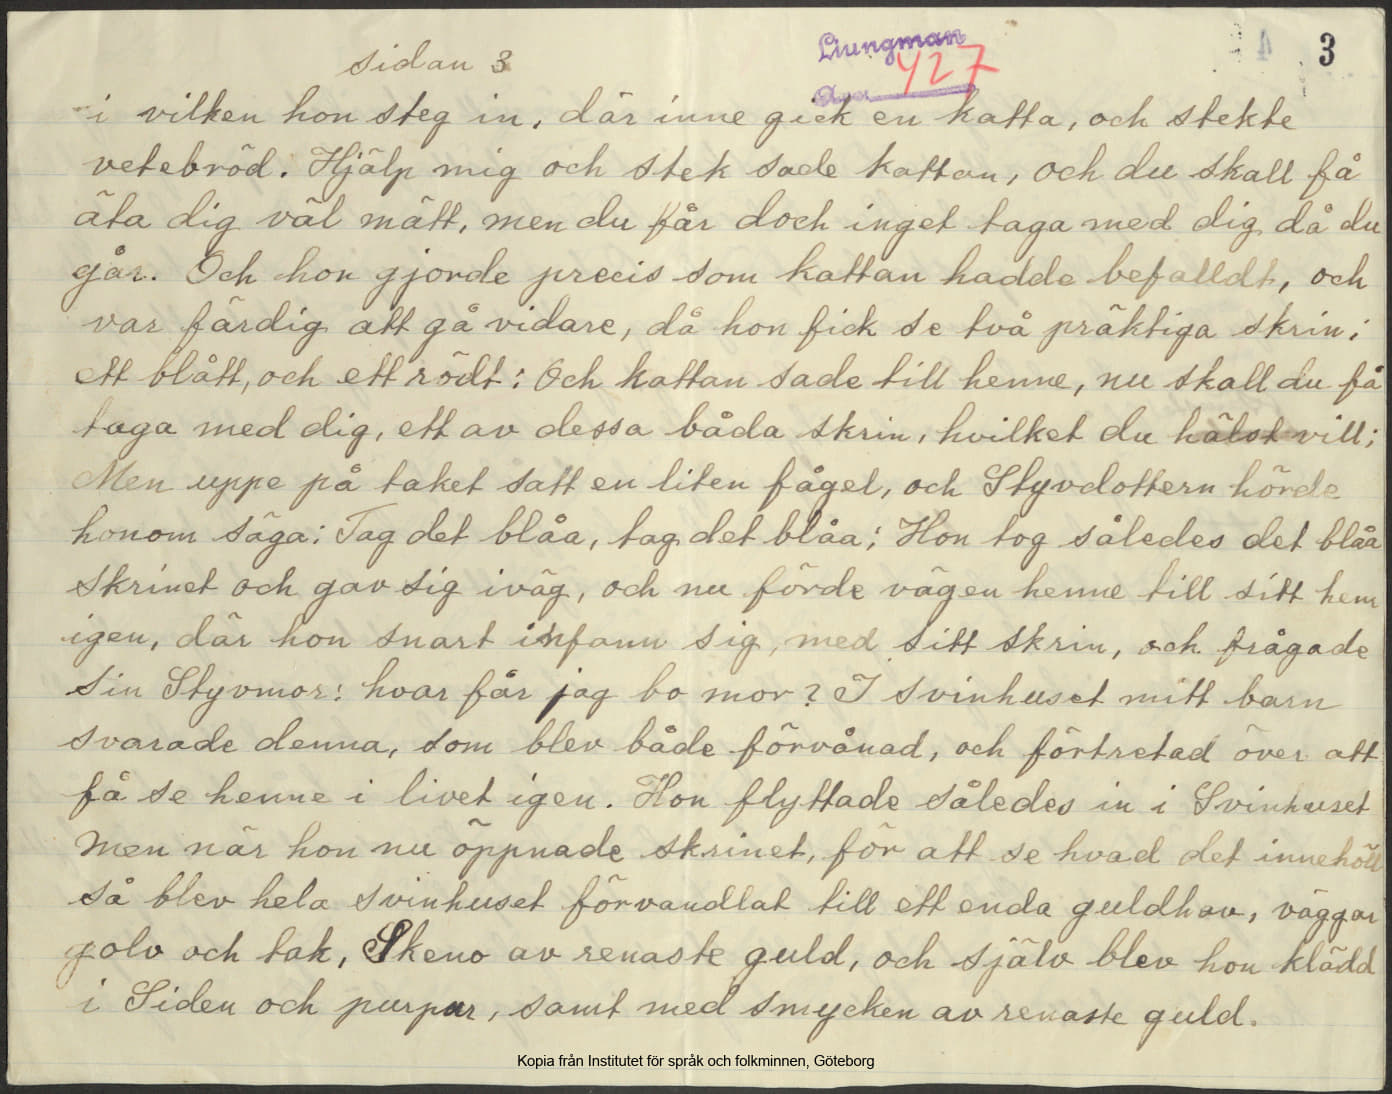 sidan 3
Ljungman
427
3
i vilken hon steg in, där inne gick en katta, och stekte
vetebröd. Hjälp mig och stek sade kattan, och du skall få
äta dig väl mätt, men du får doch inget taga med dig då du
går. Och hon gjorde precis som kattan hadde befalldt, och
var färdig att gå vidare, då hon fick se två präktiga skrin;
ett blått, och ett rödt: Och kattan sade till henne, nu skall du få
taga med dig, ett av dessa båda skrin, hvilket du hälst vill;
Men uppe på taket satt en liten fågel, och Styvdottern hörde
honom säga: Tag det blåa, tag det blåa; Hon tog således det blåa
skrinet och gav sig iväg, och nu förde vägen henne till sitt hem
igen, där hon snart infann sig, med sitt skrin, och frågade
sin Styvmor: hvar får jag bo mor? I svinhuset mitt barn
svarade denna, som blev både förvånad, och förtretad över att
få se henne i livet igen. Hon flyttade således in i Svinhuset
Men när hon nu öppnade skrinet, för att se hvad det innehöll
så blev hela svinhuset förvandlat till ett enda guldhav, väggar
golv och tak, Skeno av renaste guld, och själv blev hon klädd
i Siden och purpur, samt med smycken av renaste guld.
Kopia från Institutet för språk och folkminnen, Göteborg